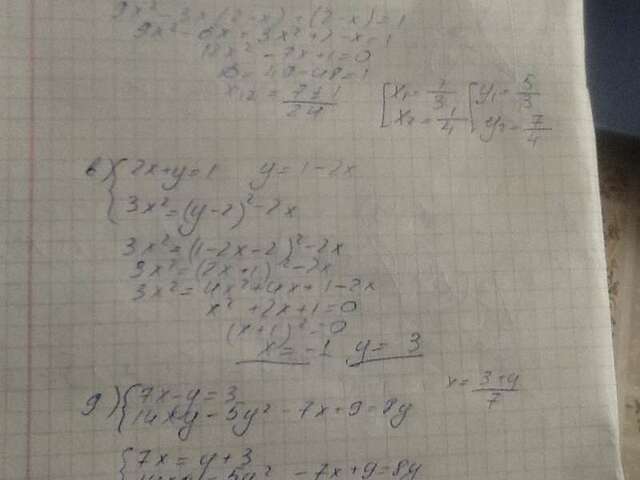 9x² - 3x(2-x) + (2-x) = 1
9x² - 6x + 3x² + 2 - x = 1
12x² - 7x + 1 = 0
D = 49 - 48 = 1
x₁,₂ = (7±1)/24
[x₁ = 1/3 [y₁ = 5/3
[x₂ = 1/4 [y₂ = 7/4
в) {2x+y=1 y = 1-2x
{3x² = (y-2)² - 2x
3x² = (1-2x-2)² - 2x
3x² = (2x+1)² - 2x
3x² = 4x² + 4x + 1 - 2x
x² + 2x + 1 = 0
(x+1)² = 0
x = -1 y = 3
g) {7x - y = 3 x = (3+y)/7
{14xy - 5y² - 7x + 9 = 8y
{7x = y + 3
- 5y² - 7x + 9 = 8y